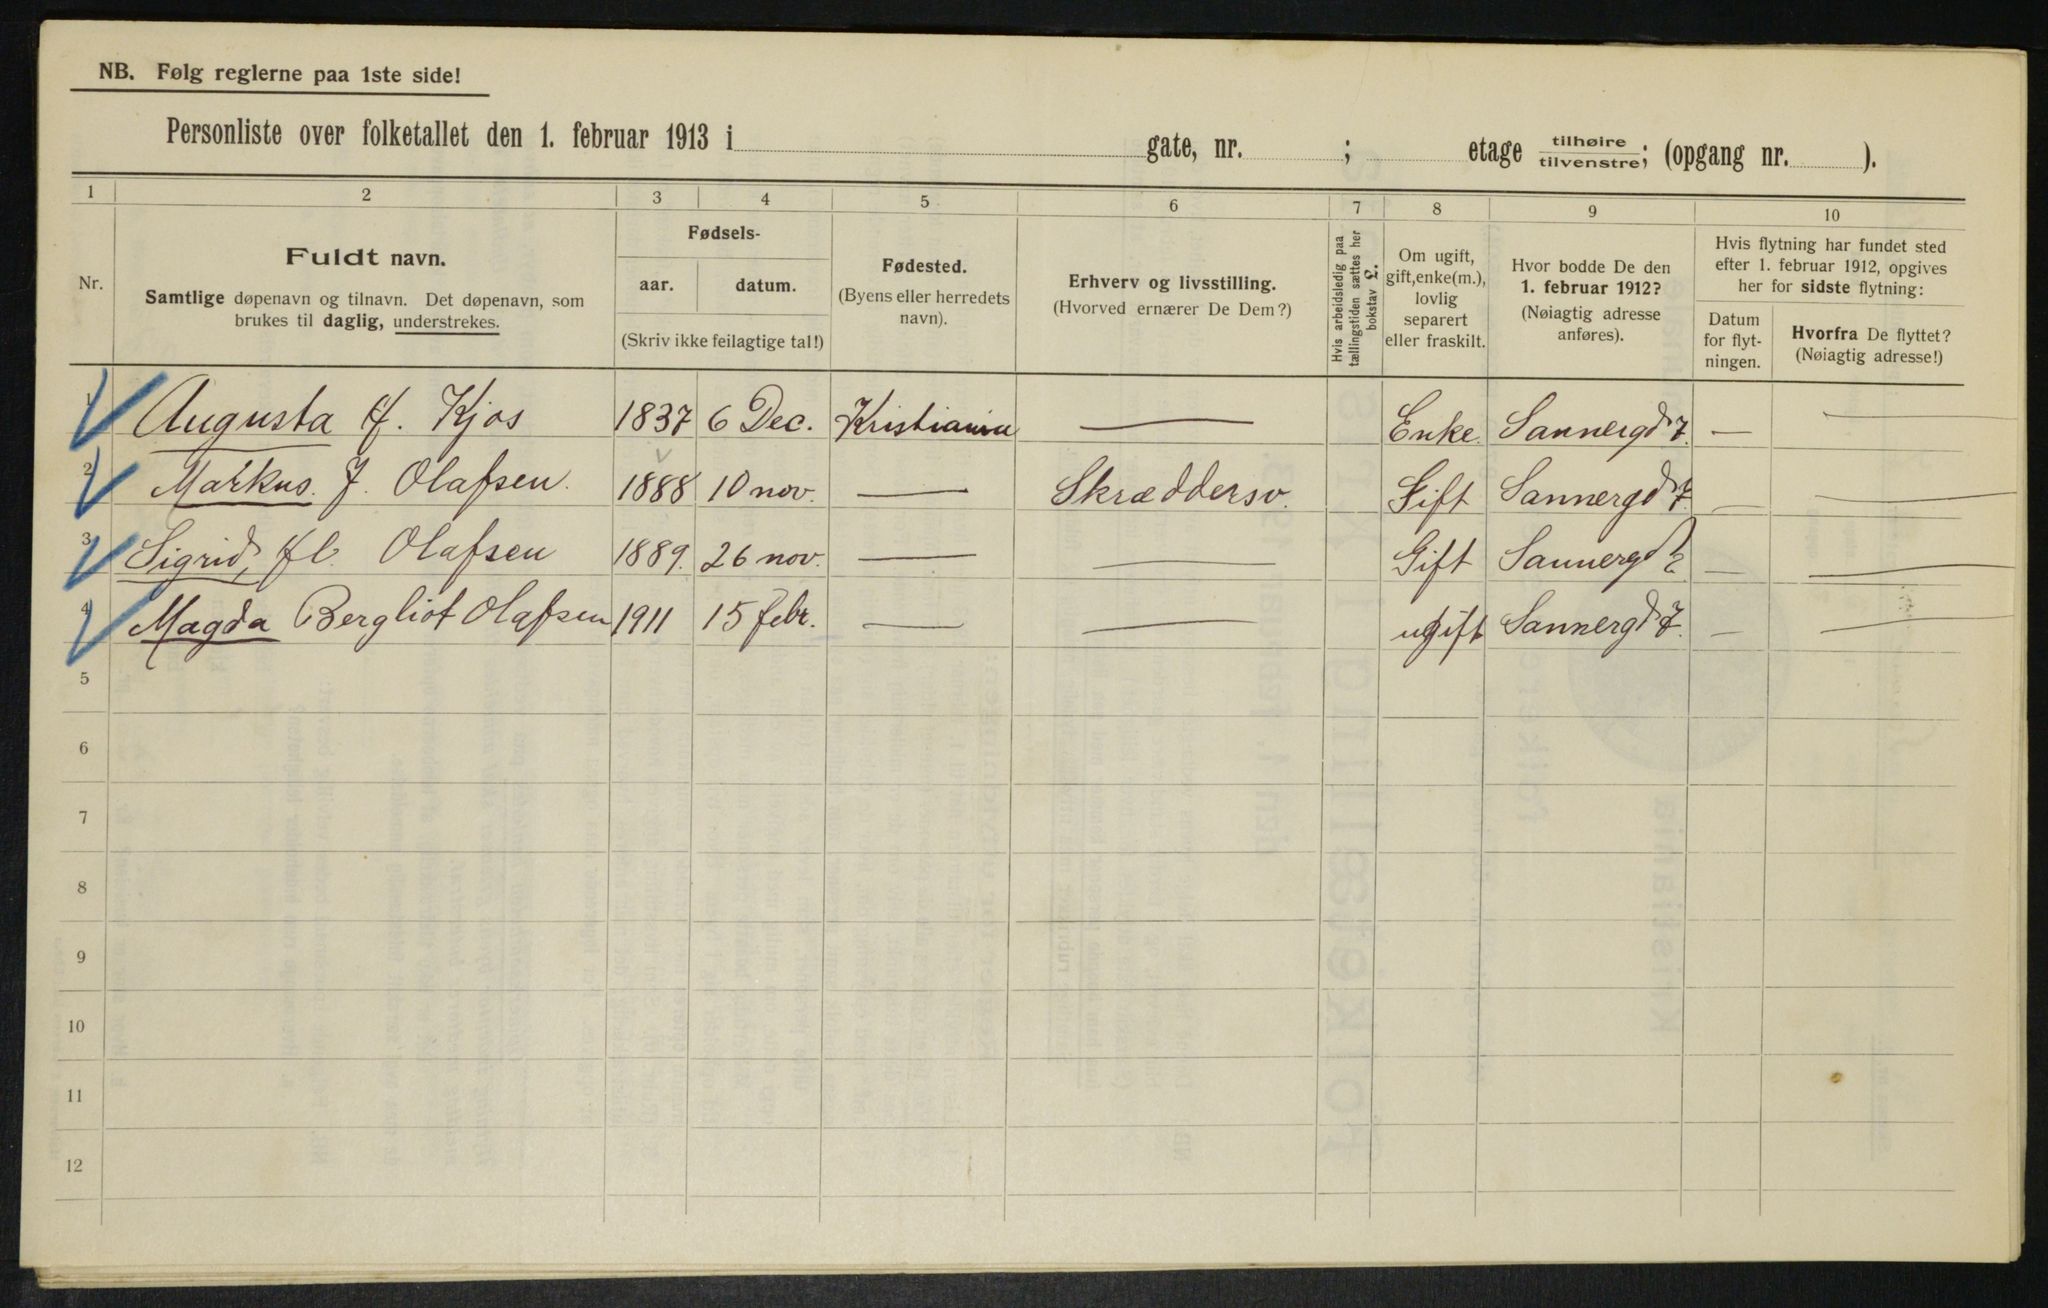 NB. Følg reglerne paa 1ste side!
Personliste over folketallet den 1. februar 1913 i gate, nr. ; etage tilhøire tilvenstre; (opgang nr. ).
1 2 3 4 5 6 7 8 9 10
Nr.
Fuldt navn.
Samtlige døpenavn og tilnavn. Det døpenavn, som
brukes til daglig, understrekes.
Fødsels-
aar. datum.
(Skriv ikke feilagtige tal!)
Fødested.
(Byens eller herredets
navn).
Erhverv og livsstilling.
(Hvorved ernærer De Dem?)
Hvis arbeidsledig paa
tællingstiden sættes her
bokstav L.
Om ugift,
gift, enke(m.),
lovlig
separert
eller fraskilt.
Hvor bodde De den
1. februar 1912?
(Nøiagtig adresse
anføres).
Hvis flytning har fundet sted
efter 1. februar 1912, opgives
her for sidste flytning:
Datum
for flyt-
ningen.
Hvorfra De flyttet?
(Nøiagtig adresse!)
1 Augusta Kjos 1837 6 Dec. Kristiania — Enke. Sannergd 7. — —
2 Markus. J. Olafsen. 1888 10 nov. — Skræddersv. Gift Sannergd 7. — —
3 Sigrid, Olafsen 1889. 26 nov. — — Gift Sannergd — —
4 Magda Bergliot Olafsen 1911 15 febr. — — ugift Sannergd 7. — —
5
6
7
8
9
10
11
12